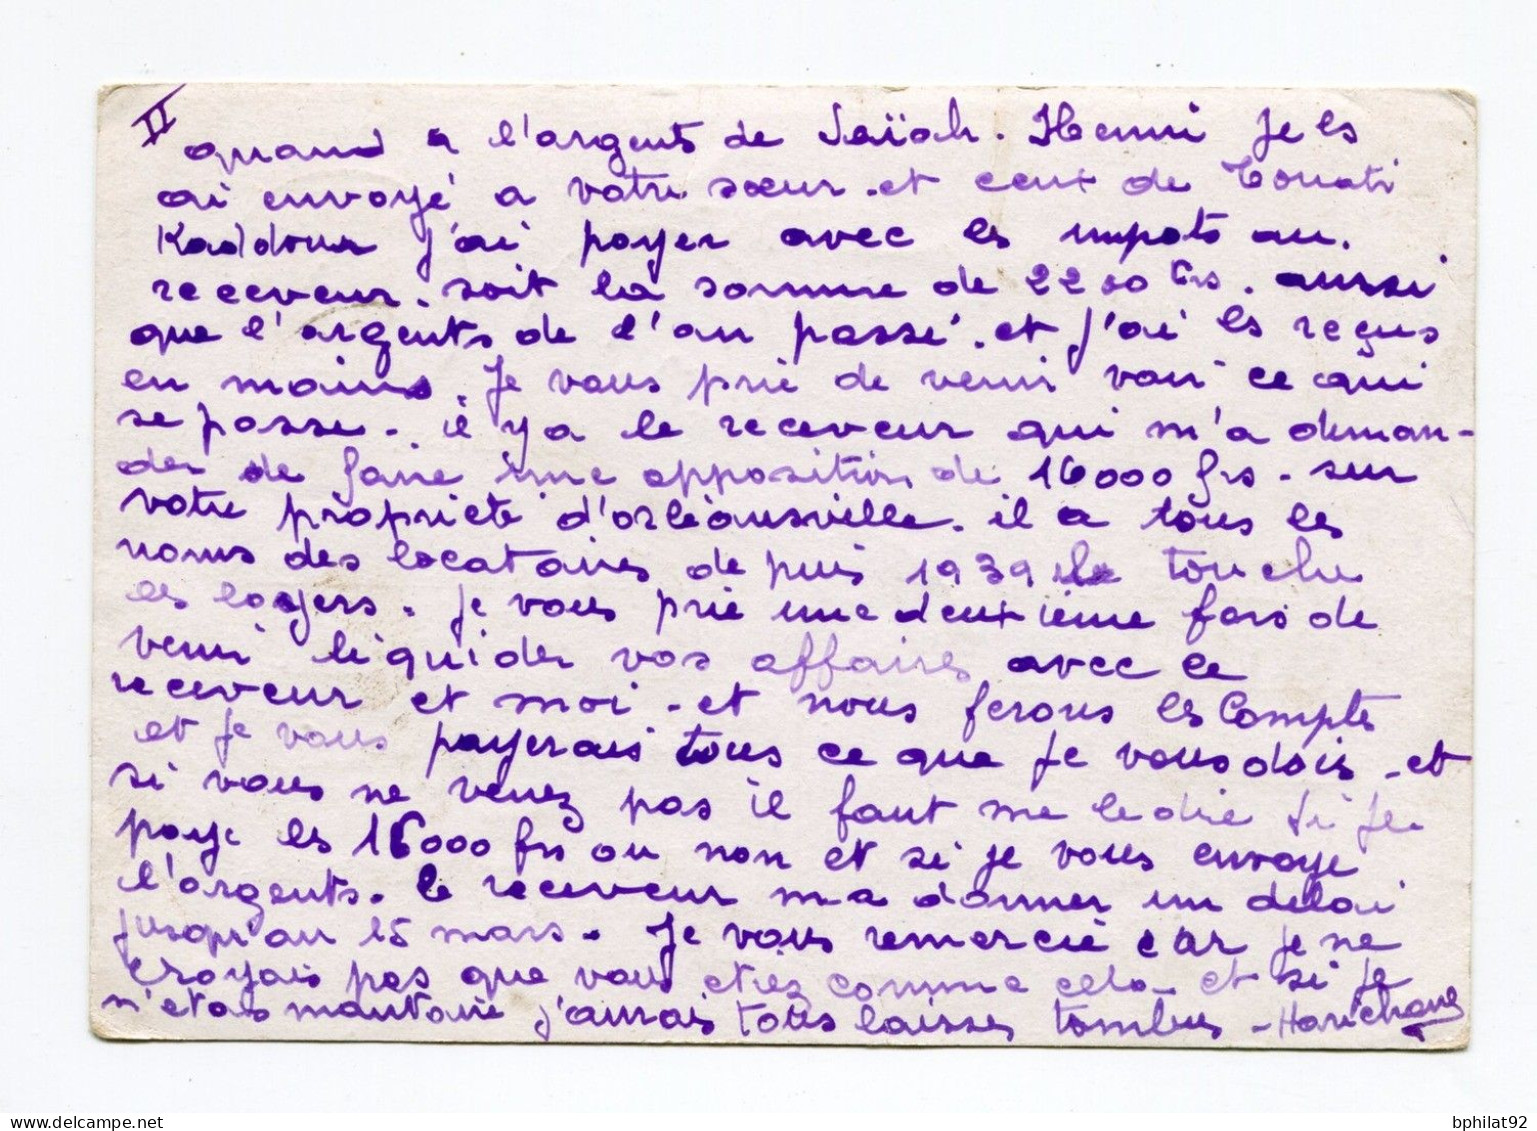 II
quand a l'argents de Saïah. Henni Je les
ai envoyé a votre sœur. et ceux de Touati
Kaddour j'ai payer avec les impots au.
receveur. soit la somme de 2200 frs. aussi
que l'argents de l'an passé. et J'ai les reçus
en mains. Je vous prie de venir voir ce qui
se passe. il y a le receveur qui m'a deman-
der de faire une opposition de 16000 frs. sur
votre propriete d'orleansville. il a tous les
noms des locataires depuis 1939 touche
les loyers. Je vous prie une deuxième fois de
venir liquider vos affaires avec ce
receveur et moi. et nous ferons les Compte
et Je vous payerais tous ce que Je vous dois. et
si vous ne venez pas il faut me le dire si Je
paye les 16000 frs ou non et si je vous envoye
l'argents. le receveur m'a donner un delai
jusqu'au 15 mars. Je vous remercie car je ne
croyais pas que vous etiez comme cela. et si je
n'etais mantaire j'aurais tous laisses tombes - Harichane
bphilat92